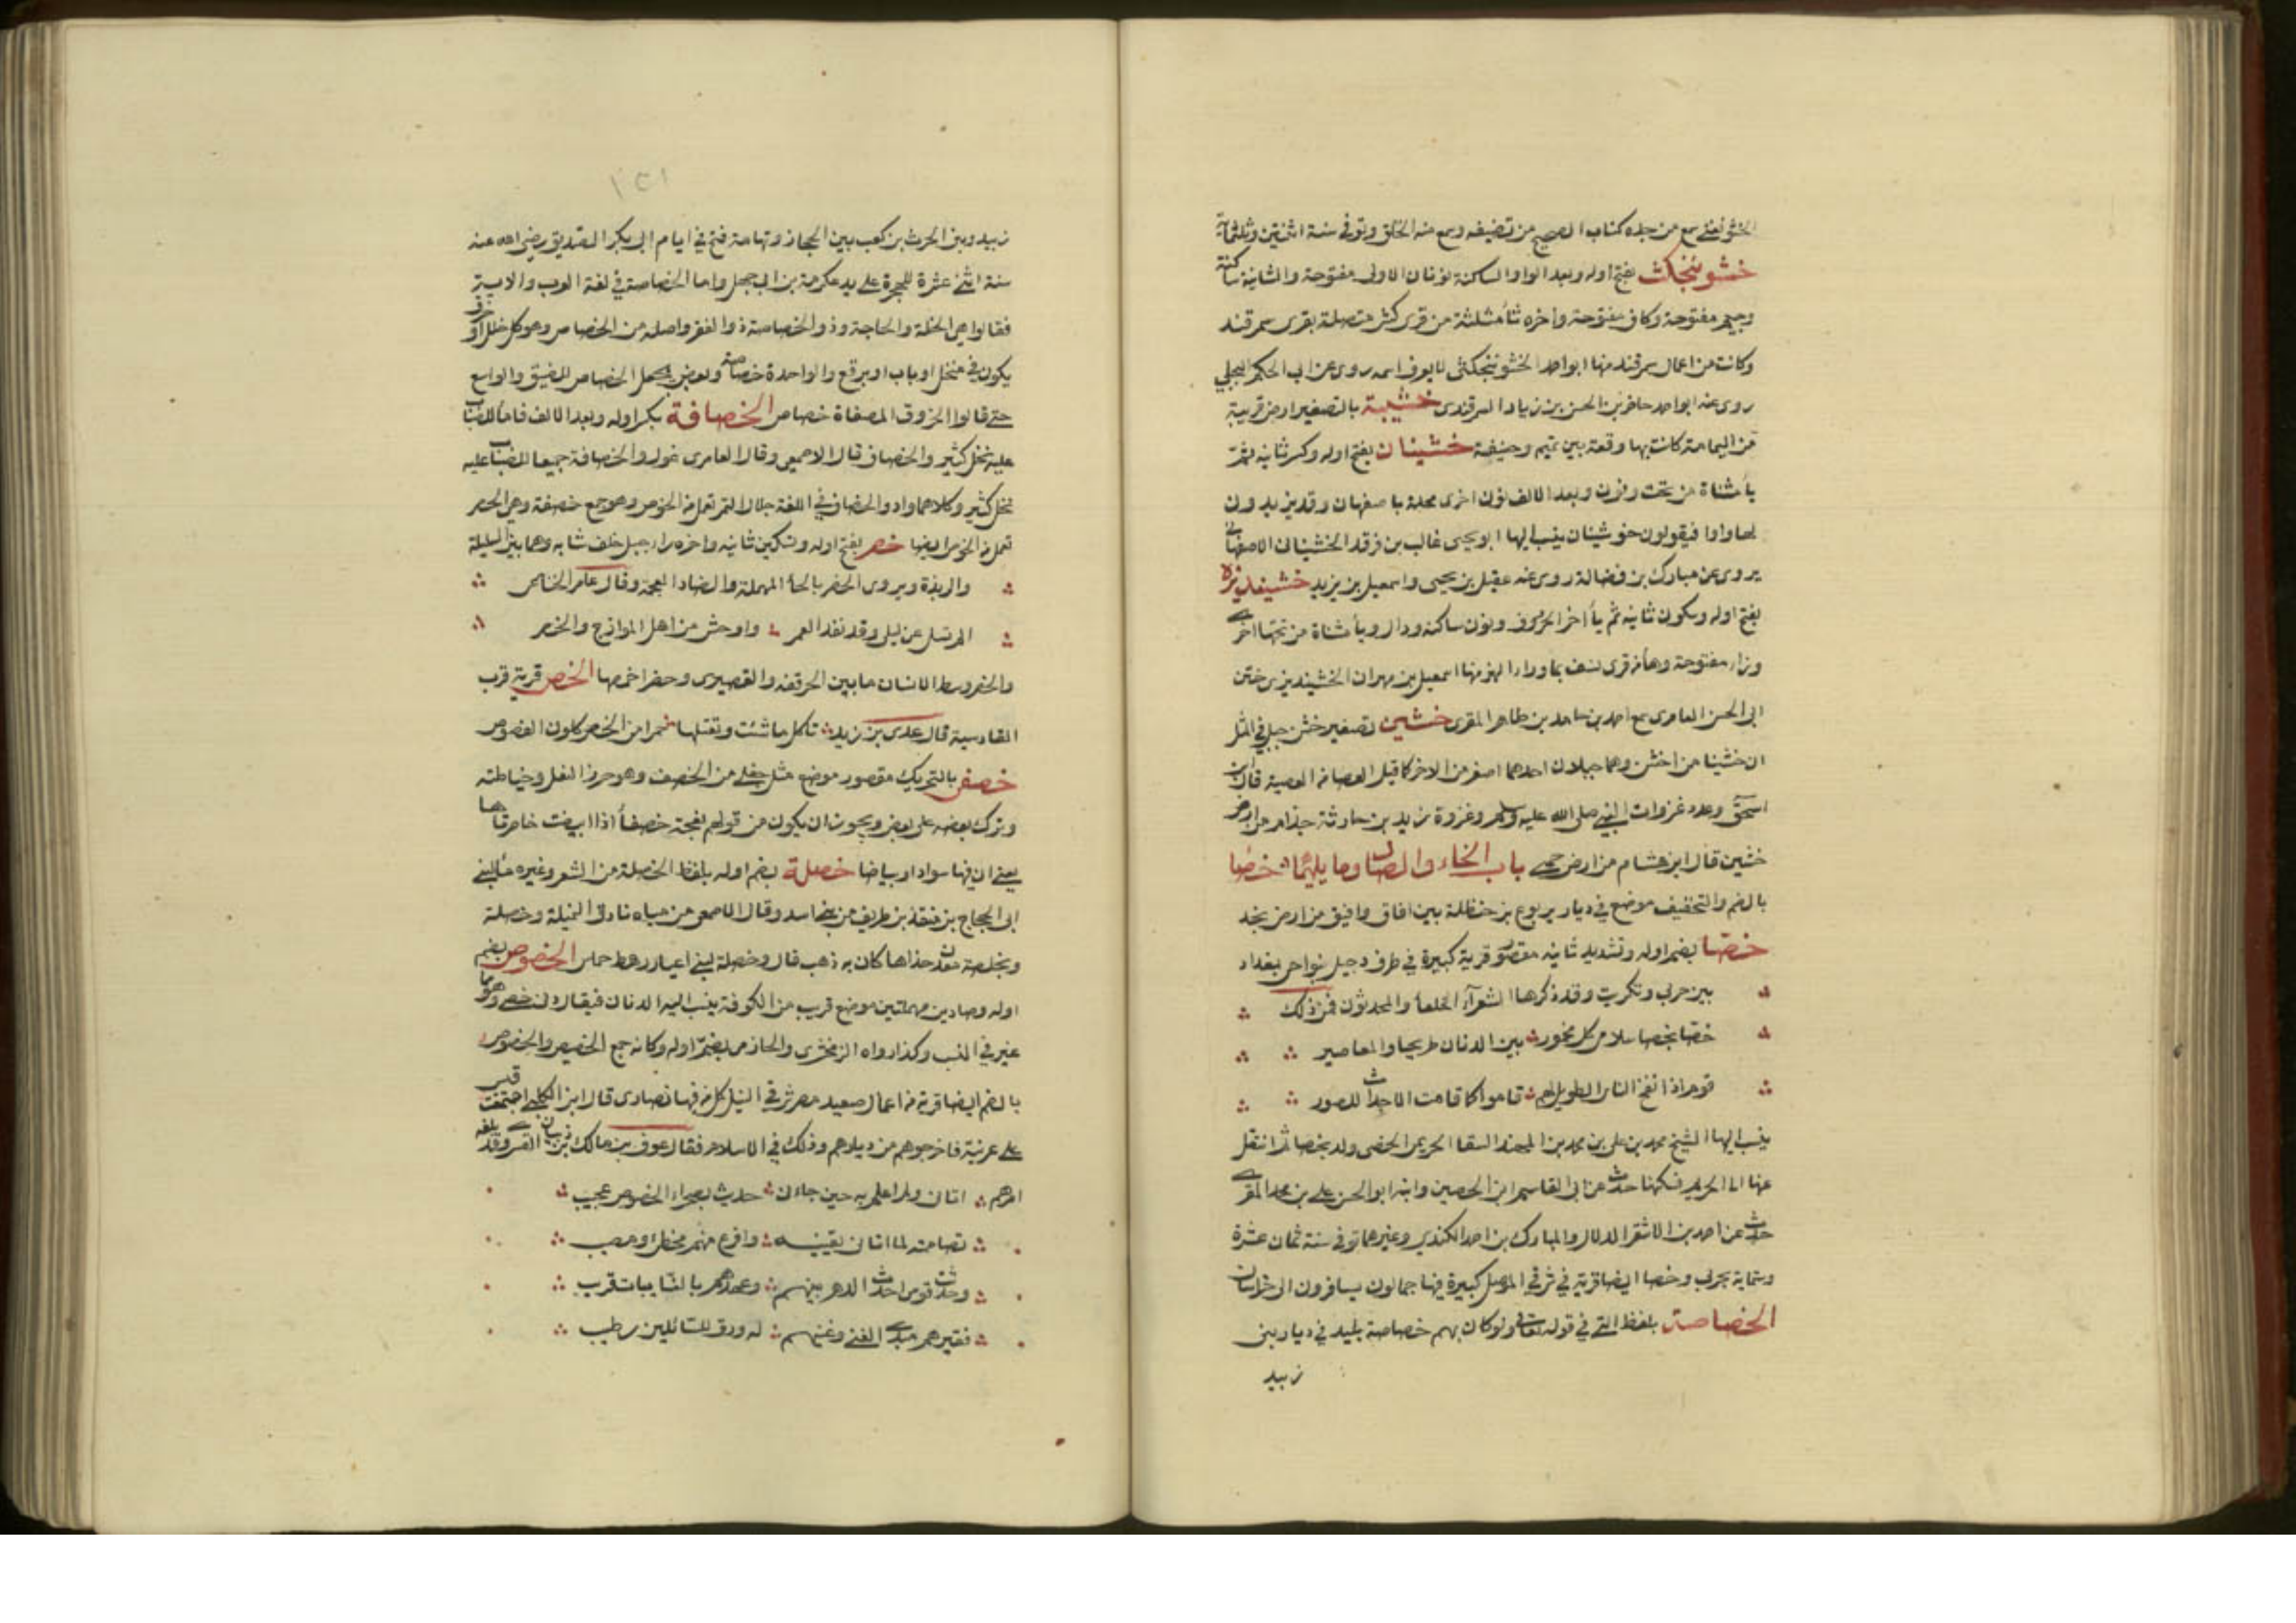 الخشوفغني سمع من جده كتاب الصحيح من تصنيفه وسمع منه الخلق وتوفي في سنة اثنتين وثلثمائة
خشوننجكث بفتح اوله وبعد الواو الساكنة نونان الاولى مفتوحة والثانية ساكنة
وجيم مفتوحة وكاف مفتوحة واخره ثاء مثلثة من قرى كش متصلة بقرى سمرقند
وكانت من اعمال سمرقند منها ابو احمد الخشوننجكثي لا يعرف اسمه روى عن ابي الحكم البجلي
روى عنه ابو احمد حافر بن الحسن بن زياد السمرقندي خشيبة بالتصغير ارض قريبة
من اليمامة كانت بها وقعة بين تميم وحنيفة خشينان بفتح اوله وكسر ثانيه ثم
ياء مثناة من تحت ونون وبعد الالف نون اخرى محلة باصفهان وقد يزيدون
لها واوا فيقولون خوشينان ينسب اليها ابو يحيى غالب بن فرقد الخشيناني الاصفهاني
يروي عن مبارك بن فضالة روى عنه عقيل بن يحيى واسمعيل بن يزيد خشينديزه
بفتح اوله وسكون ثانيه ثم ياء اخر الحروف ونون ساكنة ودال وياء مثناة من تحتها اخرى
وزاء مفتوحة وهاء من قرى نسف بما وراء النهر منها اسمعيل بن مهران الخشينديزي ختن
ابي الحسن العامري سمع احمد بن حامد بن طاهر المقري خشين تصغير خشن جبل في المثل
ان خشينا من اخشن وهما جبلان احدهما اصغر من الاخر كما قيل العصا من العصية قال ابن
اسحق وعدد غزوات النبي صلى الله عليه وسلم وغزوة زيد بن حارثة جذام من ارض
خشين قال ابن هشام من ارض حسمى باب الخاء والصاد وما يليهما خصا
بالضم والتخفيف موضع في ديار يربوع بن حنظلة بين افاق وافيق من ارض نجد
خصا بضم اوله وتشديد ثانيه مقصور قرية كبيرة في طرف دجيل بنواحي بغداد
بين حربى وتكريت وقد ذكرها الشعراء الخلعاء والمحدثون فمن ذلك
خصا بخصا سلام كل مخمور بين الدنان طريحا والمعاصير
قوم اذا نفخ الناي الطويل لهم قاموا كما قامت الاجداث للصور
ينسب اليها الشيخ محمد بن علي بن محمد بن المهند السقا الحريمي الخصي ولد بخصا ثم انتقل
عنها الى الحريم فسكنها حدث عن ابي القاسم ابن الحصين وابنه ابو الحسن علي بن محمد المقري
حدث عن احمد بن الاشقر الدلال والمبارك بن احمد الكندي وغيرهما توفي سنة ثمان عشرة
وستماية بحربى وخصا ايضا قرية في شرقي الموصل كبيرة فيها جمالون يسافرون الى خراسان
الخصاصة بلفظ التي في قوله تعالى ولو كان بهم خصاصة بليد في ديار بني
زبيد
١٢١
زبيد وبني الحرث بن كعب بين الحجاز وتهامة فتح في ايام ابي بكر الصديق رضي الله عنه
سنة اثني عشرة للهجرة على يد عكرمة بن ابي جهل واما الخصاصة في لغة العرب والاية
فقالوا هي الخلة والحاجة وذو الخصاصة ذو الفقر واصله من الخصاص وهو كل خلل او خرق
يكون في منخل او باب او برقع والواحدة خصاصة وبعض يجعل الخصاص للضيق والواسع
حتى قالوا الخروق المصفاة خصاص الخصافة بكسر اوله وبعد الالف فاء ماء للضباب
عليه نخل كثير والخصاف قال الاصمعي وقال العامري غول والخصافة جميعا للضباب عليه
نخل كثير وكلاهما واد والخصاف في اللغة جلال التمر تعمل من الخوص وهو جمع خصفة وهي الحصر
تعمل من الخوص ايضا خصر بفتح اوله وتسكين ثانيه واخره راء جبل خلف شابه وهما بين السليلة
والربذة ويروى الحضر بالحاء المهملة والضاد المعجمة وقال عامر الخناعي
الم تسل عن ليلى وقد نفد العمر واوحش من اهل الموازج والخصر
والخصر وسط الانسان ما بين الحرقفة والقصيرى وخصر اخمصها الخص قرية قرب
القادسية قال عدي بن زيد تاكل ما شئت وتعتلها خمرا من الخص كلون الفصوص
خصفى بالتحريك مقصور موضع مثل جفلى من الخصف وهو خرز النعل وخياطته
وترك بعضه على بعض ويجوز ان يكون من قولهم نعجة خصفاء اذا ابيضت خاصرتاها
يعني ان فيها سوادا وبياضا خصلة بضم اوله بلفظ الخصلة من الشعر وغيره ماء لبني
ابي الحجاج بن منقذ بن طريف من بني اسد وقال الاصمعي من مياه نادق النميلة وخصلة
وبخلصة معدن حذاها كان به ذهب قال وخصلة لبني اعيار رهط حماس الخصوص بضم
اوله وصادين مهملتين موضع قريب من الكوفة ينسب اليه الدنان فيقال دن خصي وهو مما
غير في النسب وكذا رواه الزمخشري والحازمي بضم اوله وكانه جمع الخص والخصوص
بالضم ايضا قرية من اعمال صعيد مصر شرقي النيل كل من فيها نصارى قال ابن الكلبي اجتمعت قيس
على عرينة فاخرجوهم من ديارهم وذلك في الاسلام فقال عوف بن مالك بن ذبيان القسري وقد بلغه
امرهم اتاني ولم اعلم به حين جاءني حديث بصحراء الخصوص عجيب
تصاممته لما اتاني يقينه وافزع منهم مخطئ ومصيب
وحدثت قومي احدث الدهر بينهم وعهدهم بالنايبات قريب
فقيرهم مبدي الغنى وغنيهم له ورق للسائلين رطيب